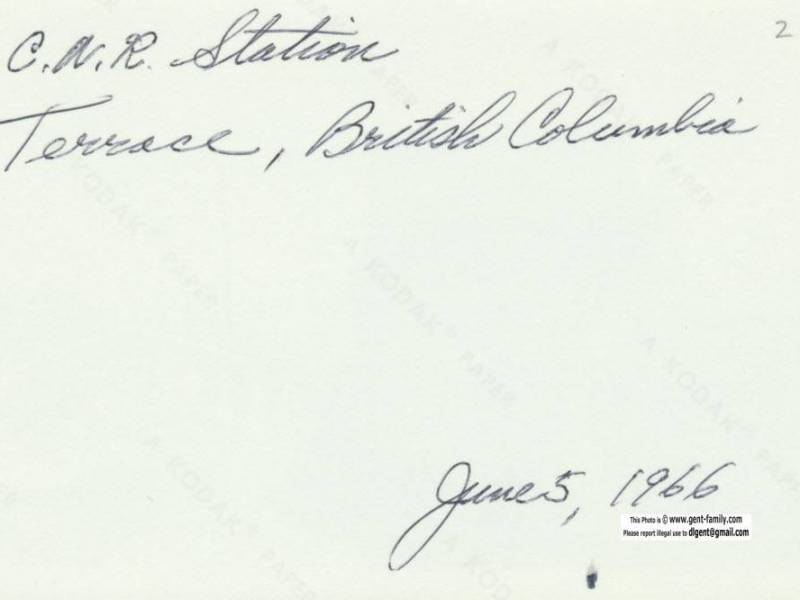 2
C.N.R. Station
Terrace, British Columbia
A KODAK PAPER
KODAK® PAPER
A KODAK® PAPER
A KODAK® PAPER
A KODAK® PAPER
June 5, 1966
This Photo is © www.gent-family.com
Please report illegal use to dlgent@gmail.com